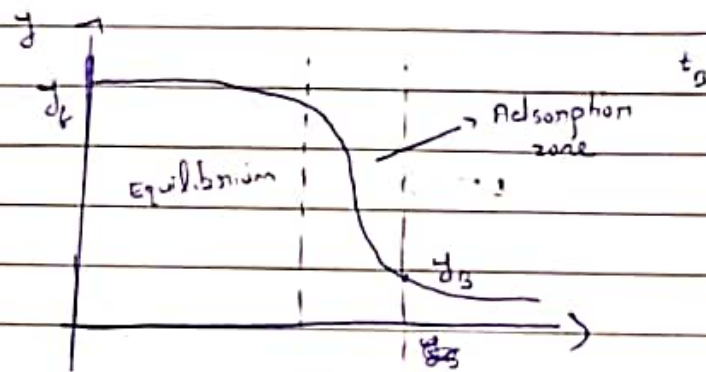 y
t_B
y_f
Adsorption
zone
Equilibrium
y_B